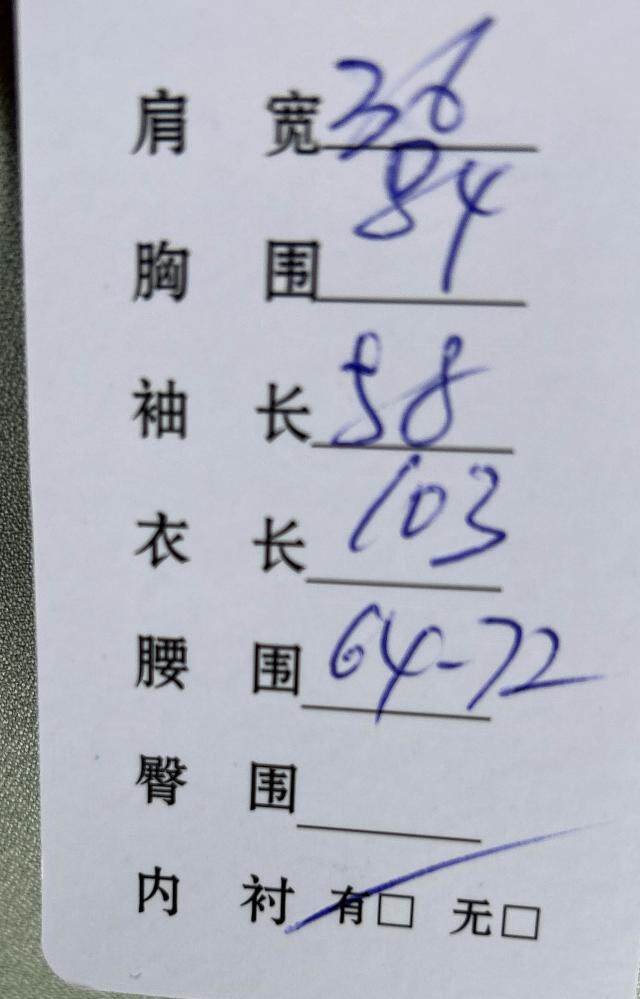 肩 宽 36
胸 围 84
袖 长 58
衣 长 103
腰 围 64-72
臀 围
内 衬 有□ 无□